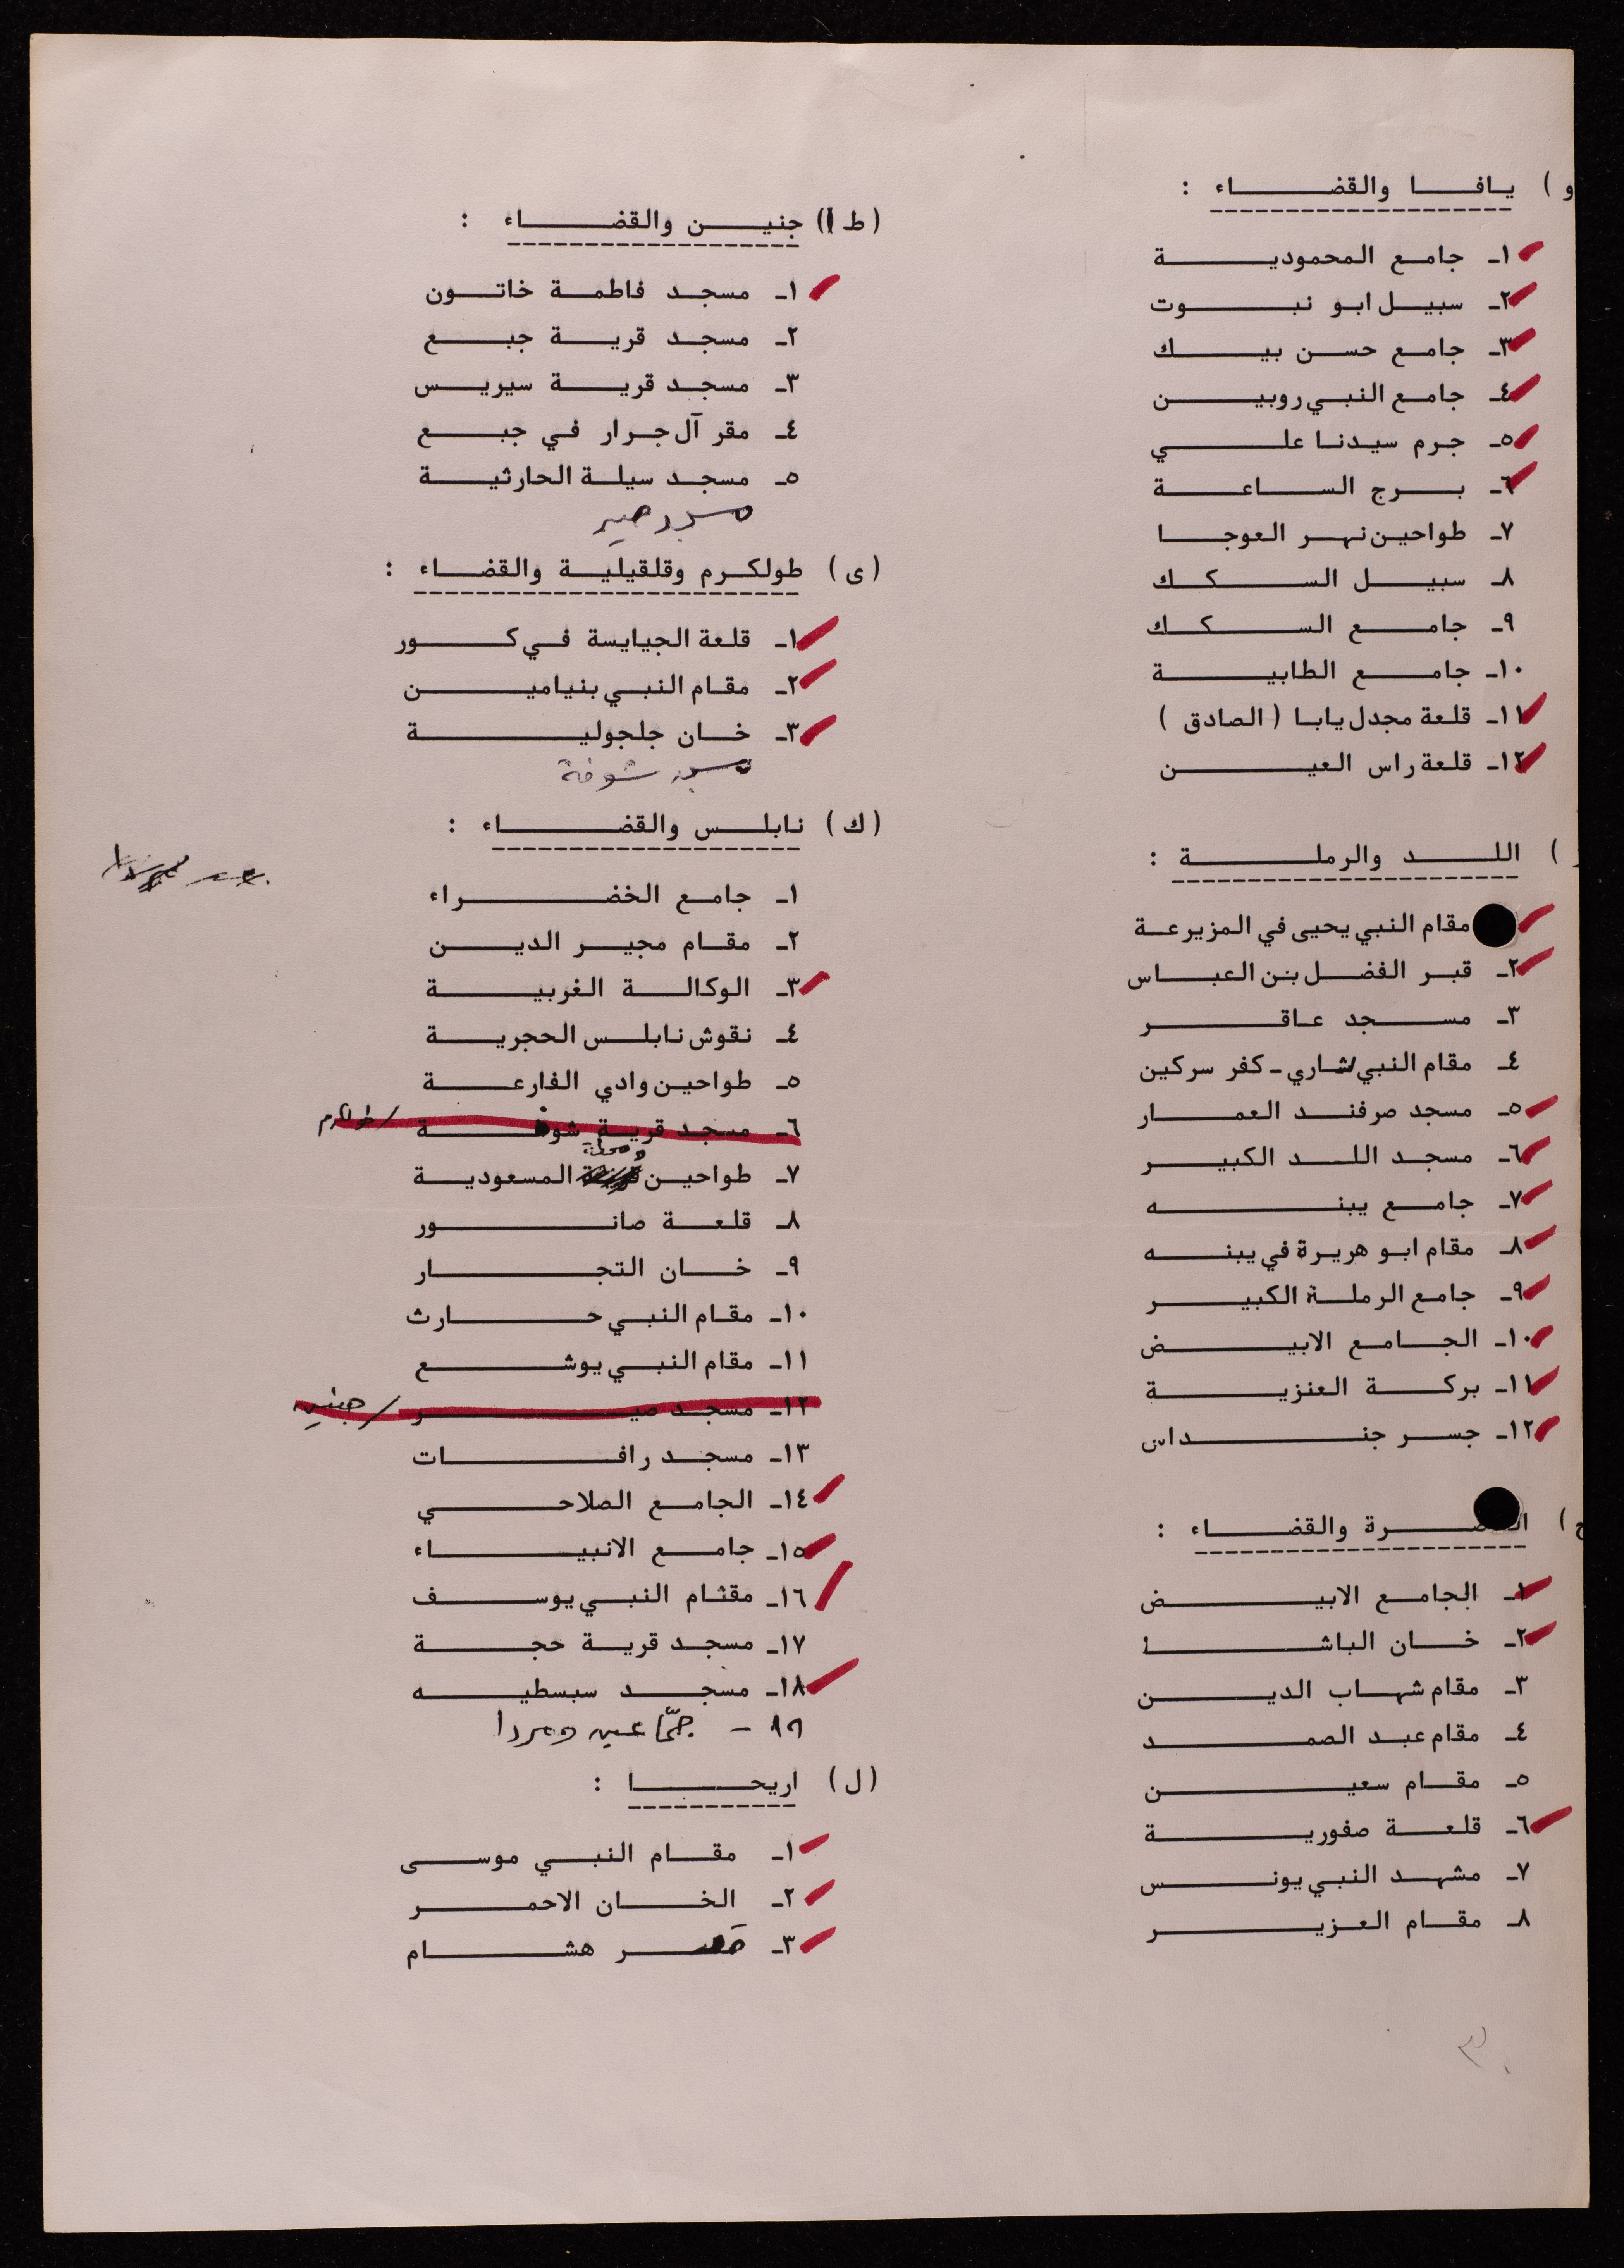 و ) يافا والقضاء :
١ـ جامع المحمودية
٢ـ سبيل ابو نبوت
٣ـ جامع حسن بيك
٤ـ جامع النبي روبين
٥ـ جرم سيدنا علي
٦ـ برج الساعة
٧ـ طواحين نهر العوجا
٨ـ سبيل السكك
٩ـ جامع السكك
١٠ـ جامع الطابية
١١ـ قلعة مجدل يابا ( الصادق )
١٢ـ قلعة راس العين
) اللد والرملة :
مقام النبي يحيى في المزيرعة
٢ـ قبر الفضل بن العباس
٣ـ مسجد عاقر
٤ـ مقام النبي شاري ـ كفر سركين
٥ـ مسجد صرفند العمار
٦ـ مسجد اللد الكبير
٧ـ جامع يبنه
٨ـ مقام ابو هريرة في يبنه
٩ـ جامع الرملة الكبير
١٠ـ الجامع الابيض
١١ـ بركة العنزية
١٢ـ جسر جنداس
ح ) الناصرة والقضاء :
١ـ الجامع الابيض
٢ـ خان الباشا
٣ـ مقام شهاب الدين
٤ـ مقام عبد الصمد
٥ـ مقام سعين
٦ـ قلعة صفورية
٧ـ مشهد النبي يونس
٨ـ مقام العزير
٣
(ط) جنين والقضاء :
١ـ مسجد فاطمة خاتون
٢ـ مسجد قرية جبع
٣ـ مسجد قرية سيريس
٤ـ مقر آل جرار في جبع
٥ـ مسجد سيلة الحارثية
مسجد صير
(ى) طولكرم وقلقيلية والقضاء :
١ـ قلعة الجيايسة في كور
٢ـ مقام النبي بنيامين
٣ـ خان جلجولية
مسجد شوفة
(ك) نابلس والقضاء :
١ـ جامع الخضراء
٢ـ مقام مجير الدين
٣ـ الوكالة الغربية
٤ـ نقوش نابلس الحجرية
٥ـ طواحين وادي الفارعة
٦ـ مسجد قرية شوفة / طولكرم
٧ـ طواحين ومحطة المسعودية
٨ـ قلعة صانور
٩ـ خان التجار
١٠ـ مقام النبي حارث
١١ـ مقام النبي يوشع
١٢ـ مسجد صير / جنين
١٣ـ مسجد رافات
١٤ـ الجامع الصلاحي
١٥ـ جامع الانبياء
١٦ـ مقثام النبي يوسف
١٧ـ مسجد قرية حجة
١٨ـ مسجد سبسطيه
١٩ - جمّاعين ومردا
(ل) اريحا :
١ـ مقام النبي موسى
٢ـ الخان الاحمر
٣ـ قصر هشام